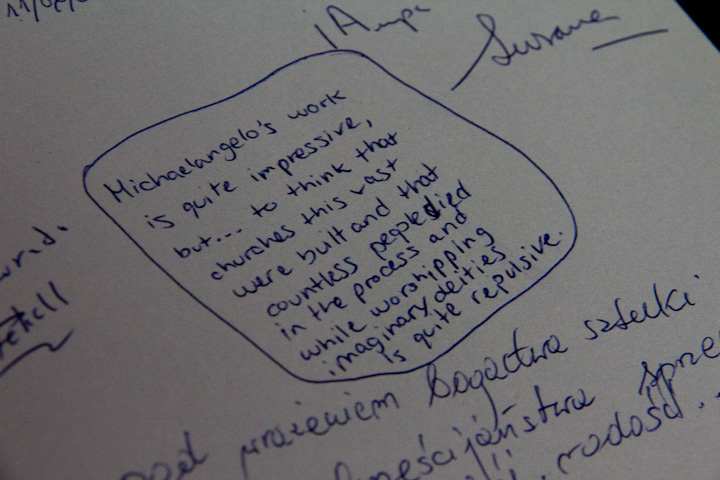 Susana
Michaelangelo's work
is quite impressive,
but... to think that
churches this vast
were built and that
countless people died
in the process and
while worshipping
imaginary deities
is quite repulsive.
pod wrażeniem bogactwa sztuki
radość..